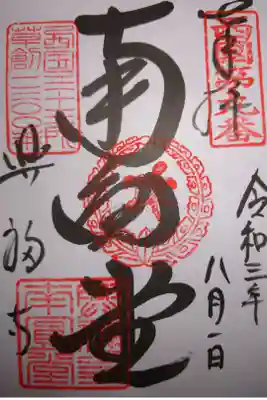 奉拝
西国第九番
令和三年
八月一日
南円堂
西国三十三所
草創一三〇〇年
興福寺
南圓堂